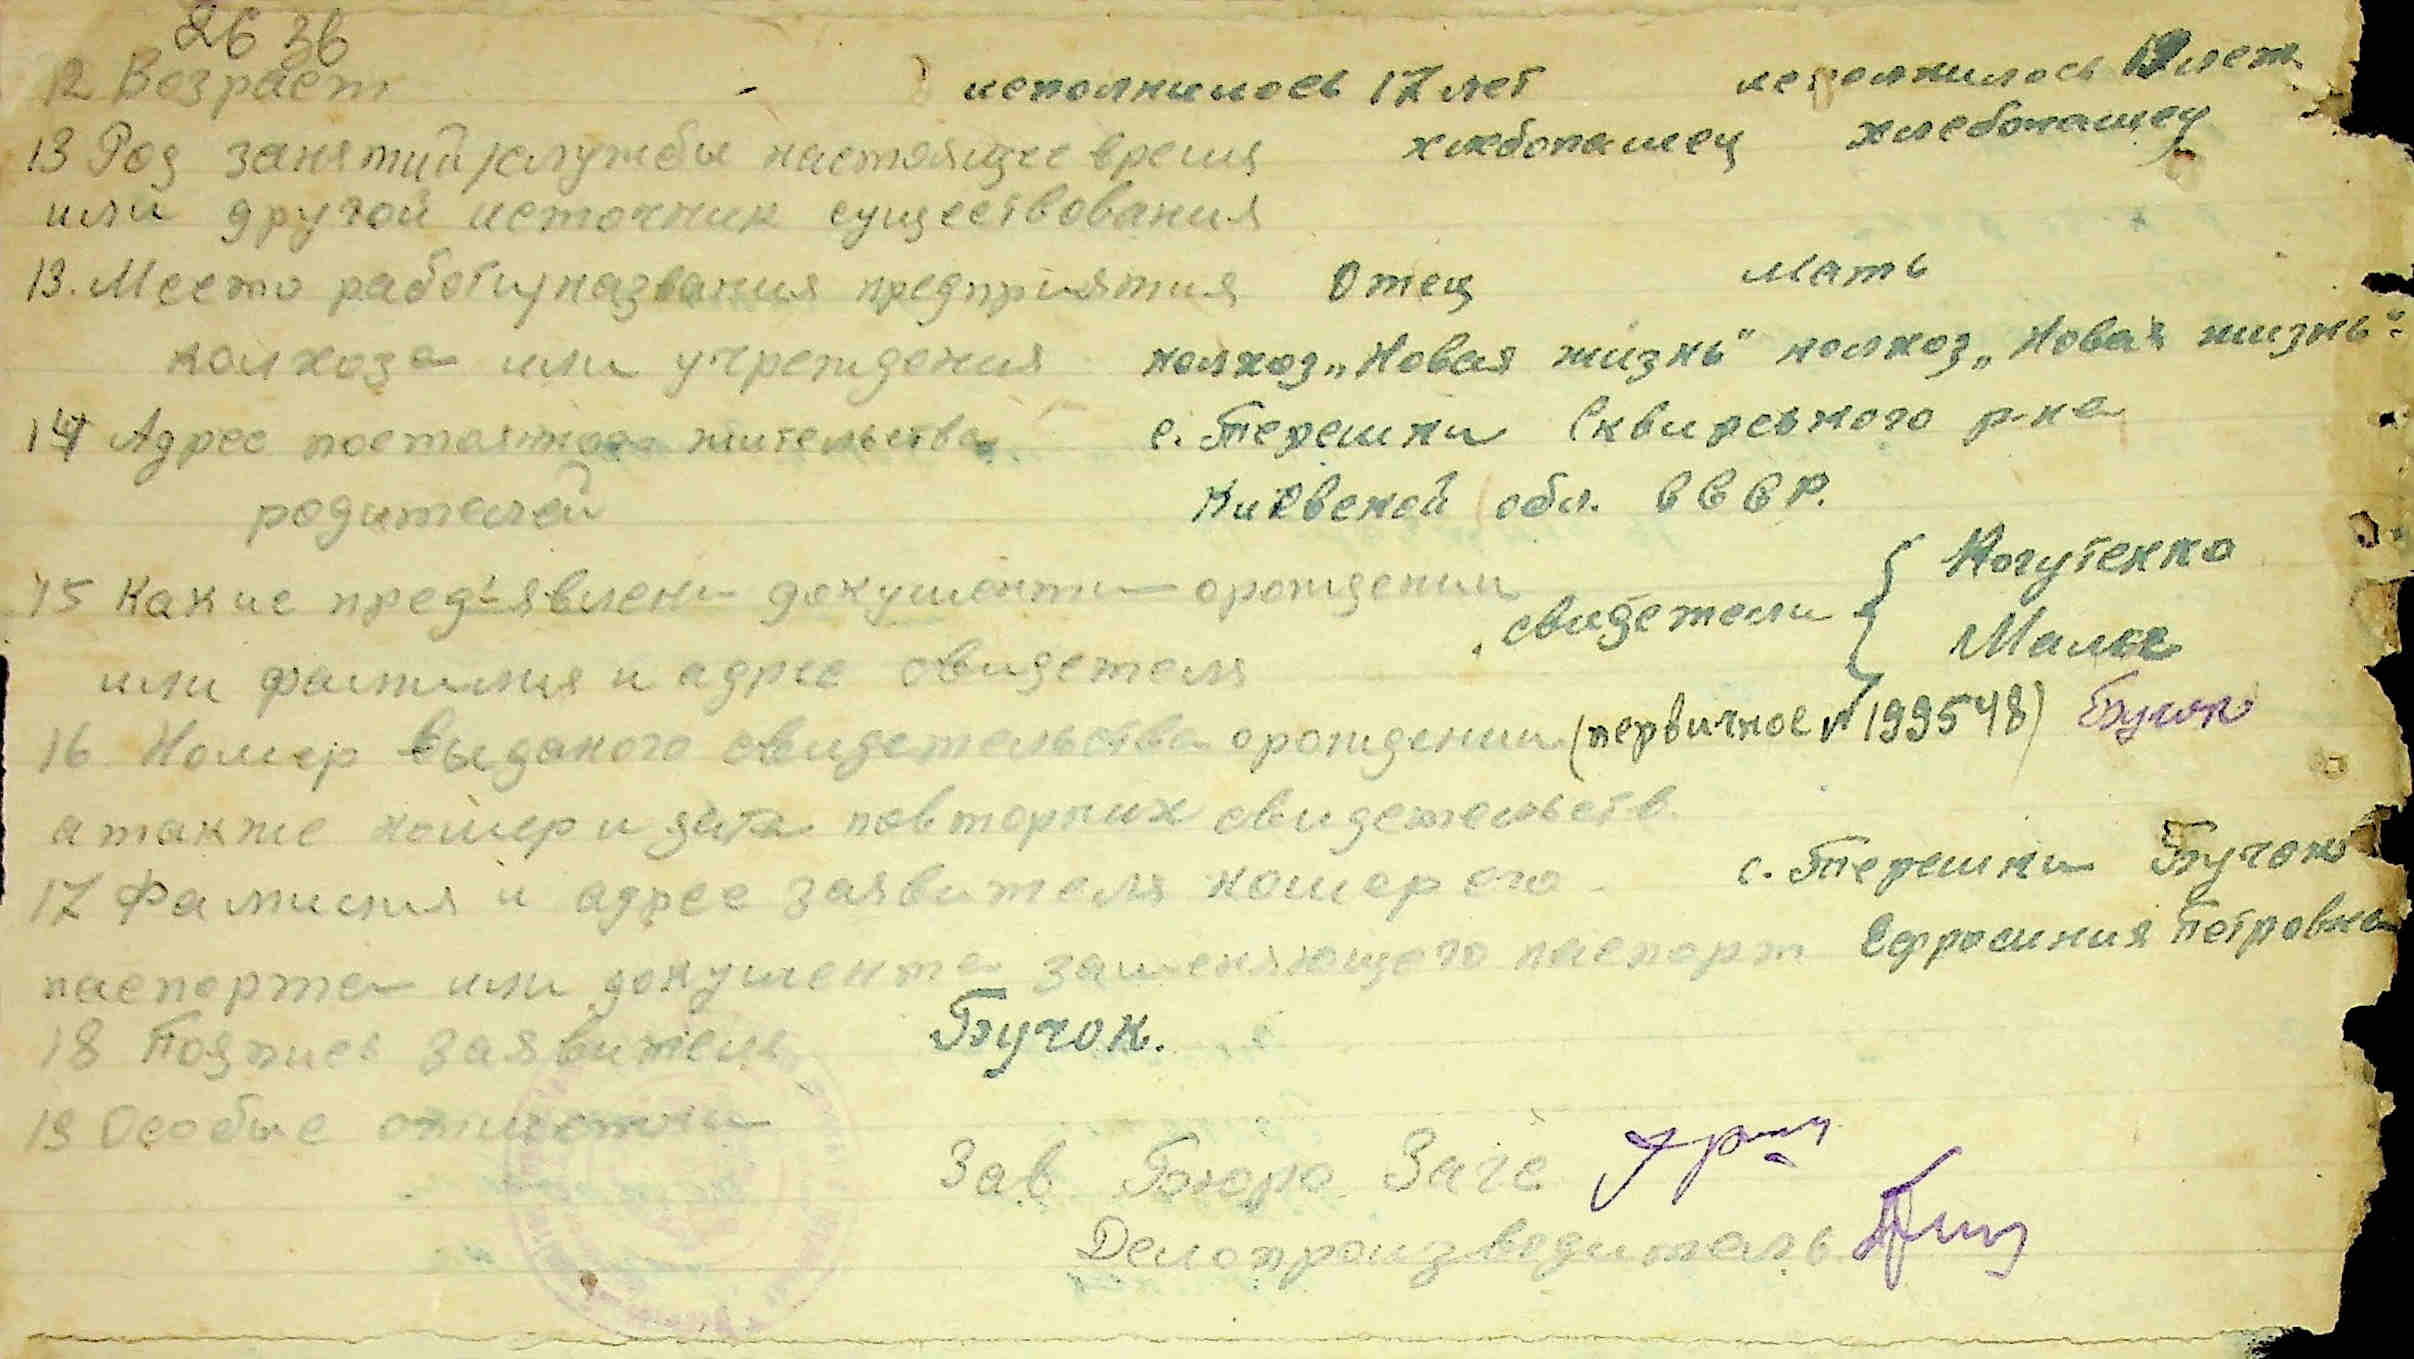 26 36
12 Возраст - исполнилось 17 лет исполнилось 19 лет
13 Род занятий/службы настоящее время хлебопашец хлебопашец
или другой источник существования
13. Место работы/названия предприятия Отец Мать
колхоза или учреждения колхоз „Новая жизнь" колхоз „Новая жизнь"
14 Адрес постоянного жительства с. Терешки Сквирського р-на
родителей Киевской обл. СССР.
15 Какие предъявлены документы о рождении свидетели Когутенко
или фамилия и адрес свидетеля Малые
16 Номер выданого свидетельства о рождении (первичное № 199548) Бучок
а также номер и дата повторних свидетельств
17 Фамилия и адрес заявителя номер его с. Терешки Бучок
паспорта или документа заменяющего паспорт Ефросиния Петровна
18 Подпись заявитель Бучок.
19 Особые отметки
Зав Бюро Загс
Делопроизводитель